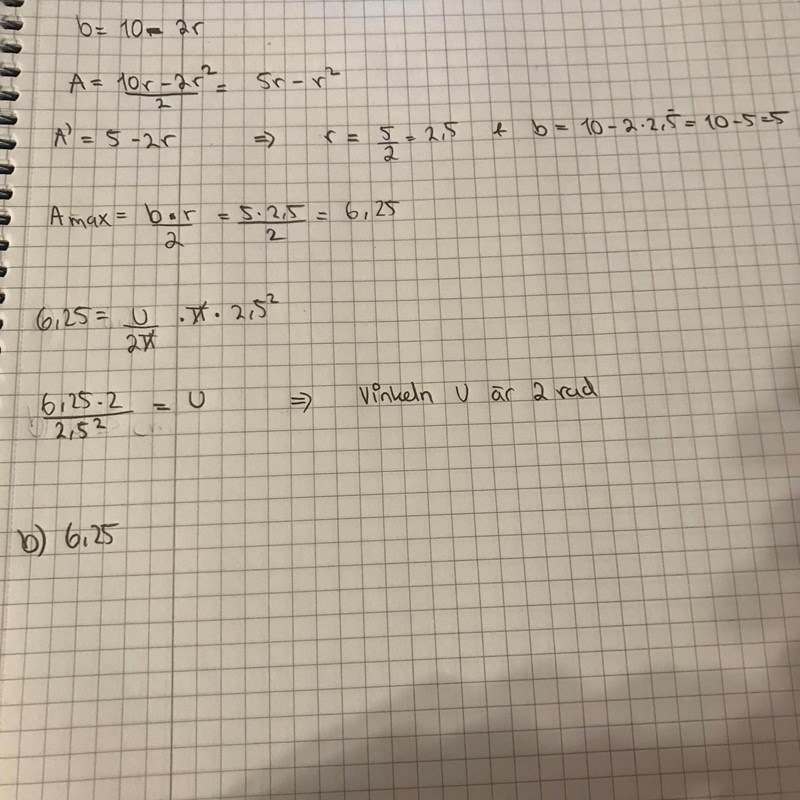 b = 10 - 2r
A = \frac{10r - 2r^2}{2} = 5r - r^2
A' = 5 - 2r ⇒ r = \frac{5}{2} = 2,5 + b = 10 - 2·2,5 = 10 - 5 = 5
Amax = \frac{b·r}{2} = \frac{5·2,5}{2} = 6,25
6,25 = \frac{U}{2π} · π · 2,5^2
\frac{6,25·2}{2,5^2} = U ⇒ Vinkeln U är 2 rad
b) 6,25